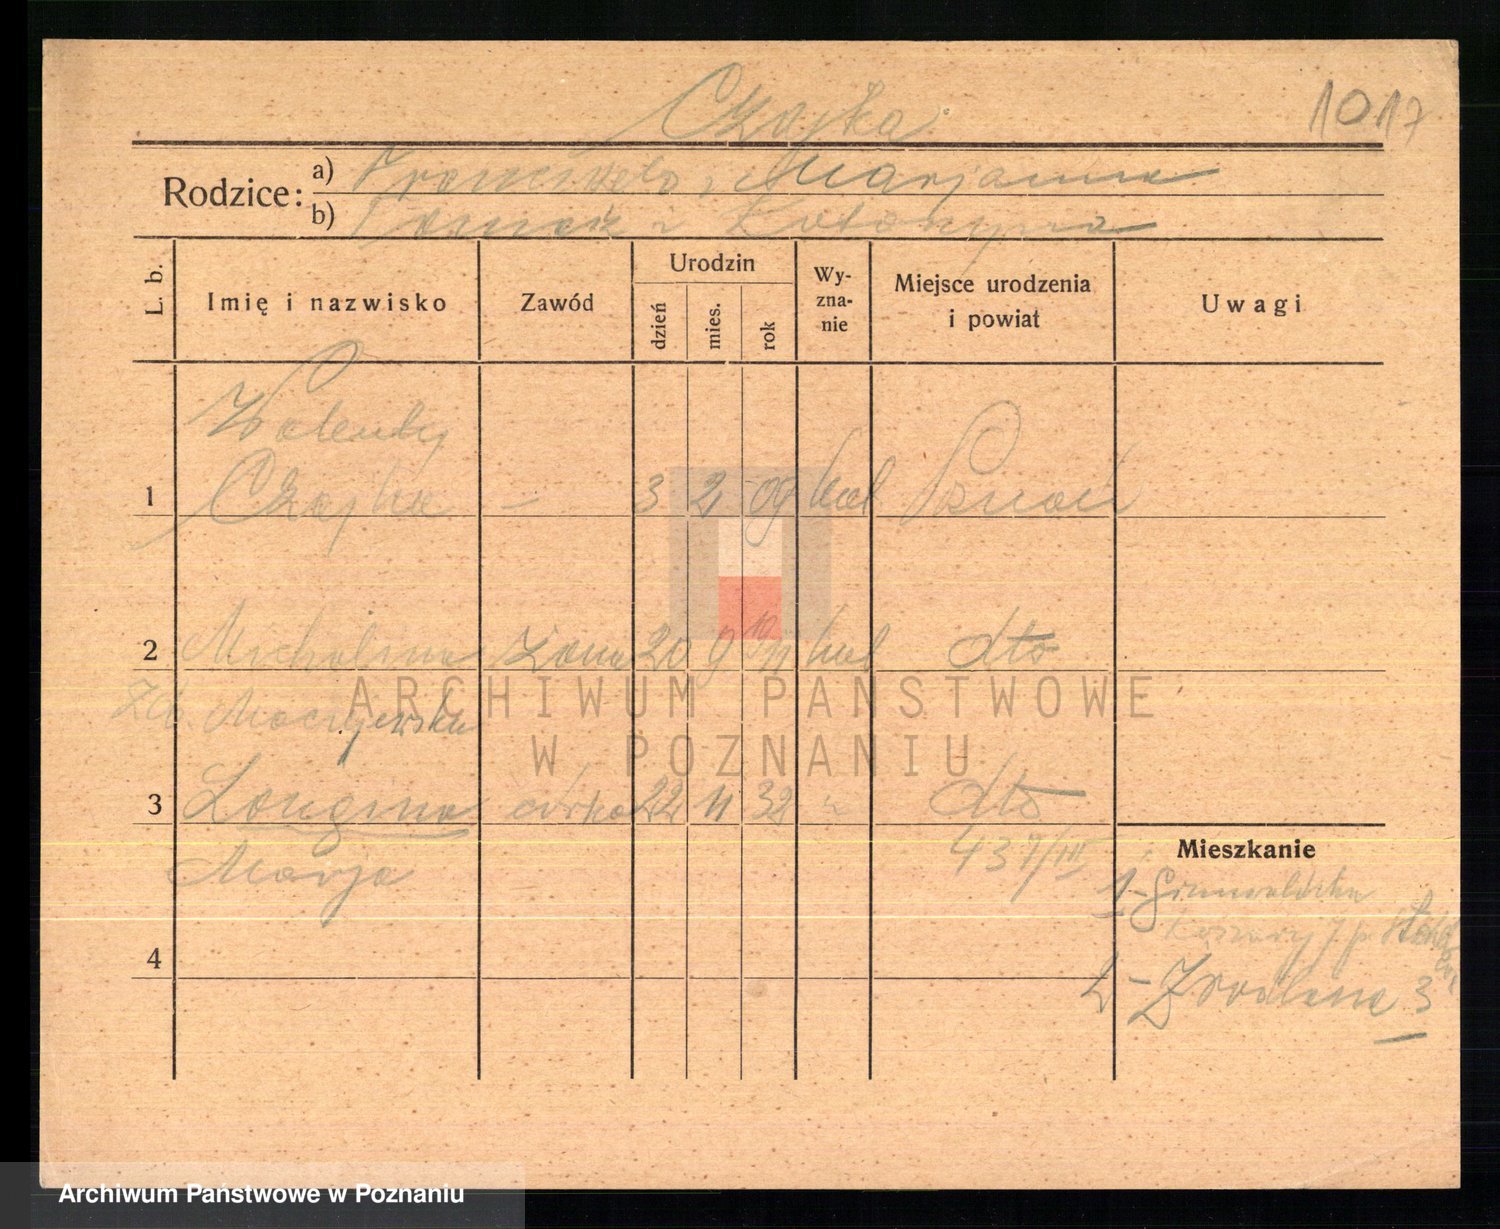 Czajka
1017
Rodzice:
a) Franciszek i Marjanna
b) Tomasz i Katarzyna
L. b.
Imię i nazwisko
Zawód
Urodzin
dzień
mies.
rok
Wy-
zna-
nie
Miejsce urodzenia
i powiat
Uwagi
Walenty
1 Czajka – 3 2 09 kat Poznań
2 Michalina żona 20 9 11 kat dto
Maciejewska
3 Longina córka 22 11 32 " dto
Marja
437/III
Mieszkanie
1 - Grunwaldzka
4
2 - Źródlana 3
ARCHIWUM PAŃSTWOWE
W POZNANIU
Archiwum Państwowe w Poznaniu